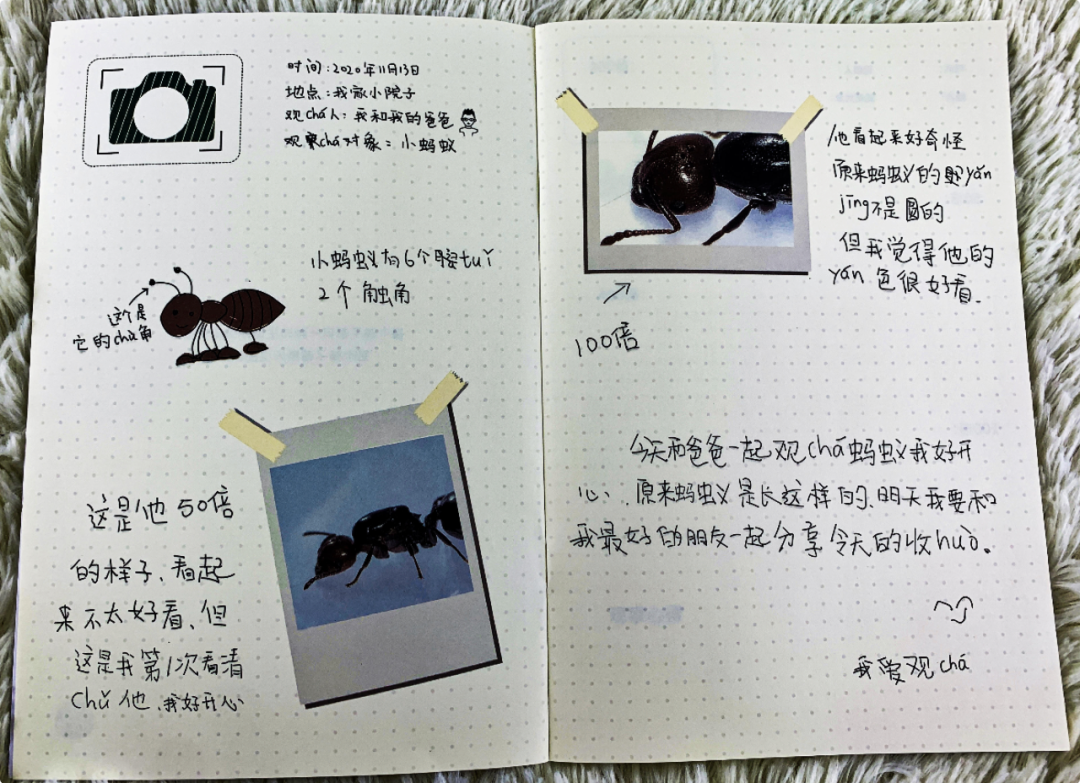 时间：2020年11月13日
地点：我家小院子
观chá人：我和我的爸爸
观chá对象：小蚂蚁
小蚂蚁有6个tuǐ
2个触角
这个是
它的chù角
这是他50倍
的样子、看起
来不太好看、但
这是我第1次看清
Chǔ他、我好开心
他看起来好奇怪
原来蚂蚁的yǎn
jīng不是圆的
但我觉得他的
yán色很好看.
100倍
今天和爸爸一起观chá蚂蚁我好开
心、原来蚂蚁是长这样的、明天我要和
我最好的朋友一起分享今天的收huò。
我爱观chá